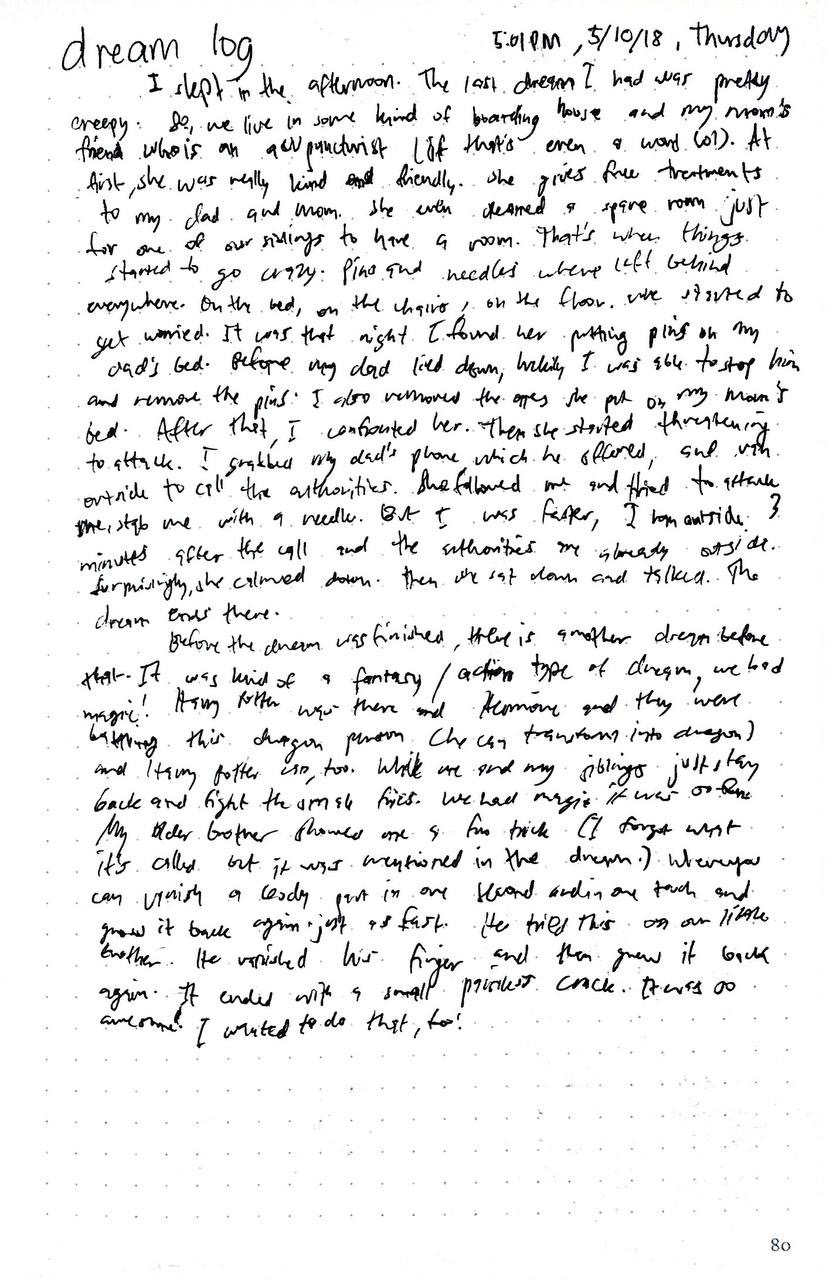 dream log
5:01PM, 5/10/18, Thursday
I slept in the afternoon. The last dream I had was pretty
creepy. So, we live in some kind of boarding house and my mom's
friend who is an accupuncturist (if that's even a word lol). At
first, she was really kind and friendly. She gives free treatments
to my dad and mom. She even cleaned a spare room just
for one of our siblings to have a room. That's when things
started to go crazy. Pins and needles where left behind
everywhere. On the bed, on the chairs, on the floor. We started to
get worried. It was that night I found her putting pins on my
dad's bed. Before my dad lied down, luckily I was able to stop him
and remove the pins. I also removed the ones she put on my mom's
bed. After that, I confronted her. Then she started threatening
to attack. I grabbed my dad's phone which he offered, and ran
outside to call the authorities. She followed me and tried to attack
me, stab me with a needle. But I was faster, I ran outside 3
minutes after the call and the authorities are already outside.
Surprisingly, she calmed down. Then we sat down and talked. The
dream ends there.
Before the dream was finished, there is another dream before
that. It was kind of a fantasy / action type of dream, we had
magic! Harry Potter was there and Hermione and they were
battling this dragon person (he can transform into dragon)
and Harry potter can, too. While me and my siblings just stay
back and fight the small fries. We had magic it was so
My older brother showed me a fun trick (I forgot what
it's called but it was mentioned in the dream.) Where you
can vanish a body part in one second and in one touch and
grow it back again just as fast. He tried this on our little
brother. He vanished his finger and then grew it back
again. It ended with a small painless crack. It was so
awesome! I wanted to do that, too!
80